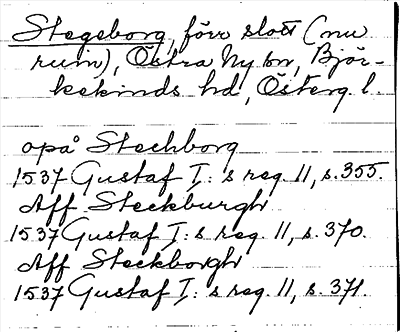 Stegeborg, förr slott (nu
ruin), Östra Ny sn, Björ-
kekinds hd, Österg. l.
opå Stechborg
1537 Gustaf I:s reg. 11, s. 355.
Aff Steckburgh
1537 Gustaf I:s reg. 11, s. 370.
Aff Steckborgh
1537 Gustaf I:s reg. 11, s. 371.